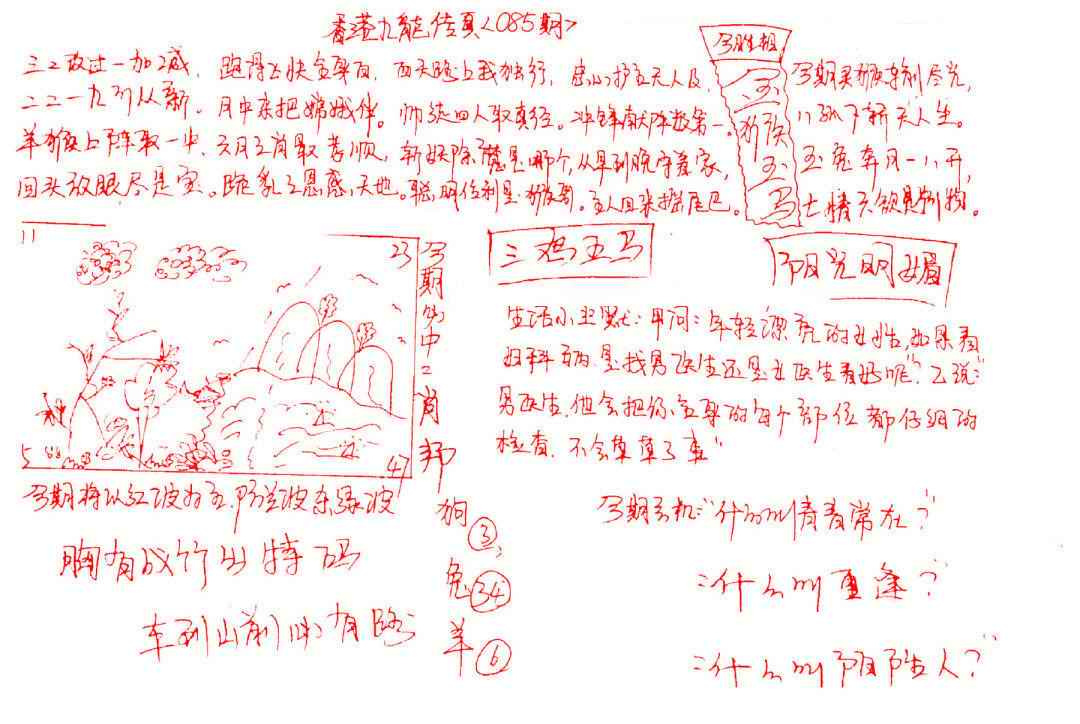 香港九龙传真<085期>
三三改过一加2减,跑得飞快全靠自,西天路上我独行,忠心护主无人及,
二二一九引从新。月中亲把嫦娥伴。师徒四人取真经。冲锋献阵数第一。
羊猴上阵取一半,六月之肖最孝顺,斩妖除魔是哪个,从早到晚守着家,
回头放眼尽是宝。跪乳之恩感天地。聪明伶利是猴哥。主人回来摇尾巴。
今胜招
玉
猴
玉
马
今期灵猴转制尽光,
玉兔奔月一八开,
11
23
5
47
今期必中二肖那
三鸡五马
阳光明媚
生活小幽默:甲问:年轻漂亮的女性,如果看
妇科病是找男医生还是女医生看好呢?乙说:
男医生,他会把你全身的每个部位都仔细的
检查,不会草草了事"
今期将以红波为主,防蓝波杂绿波
胸有成竹出特码
车到山前必有路
狗③,
兔㉞
羊⑥
今期玄机:"什么叫青春常在?"
:什么叫重逢?"
:什么叫阴阳人?"